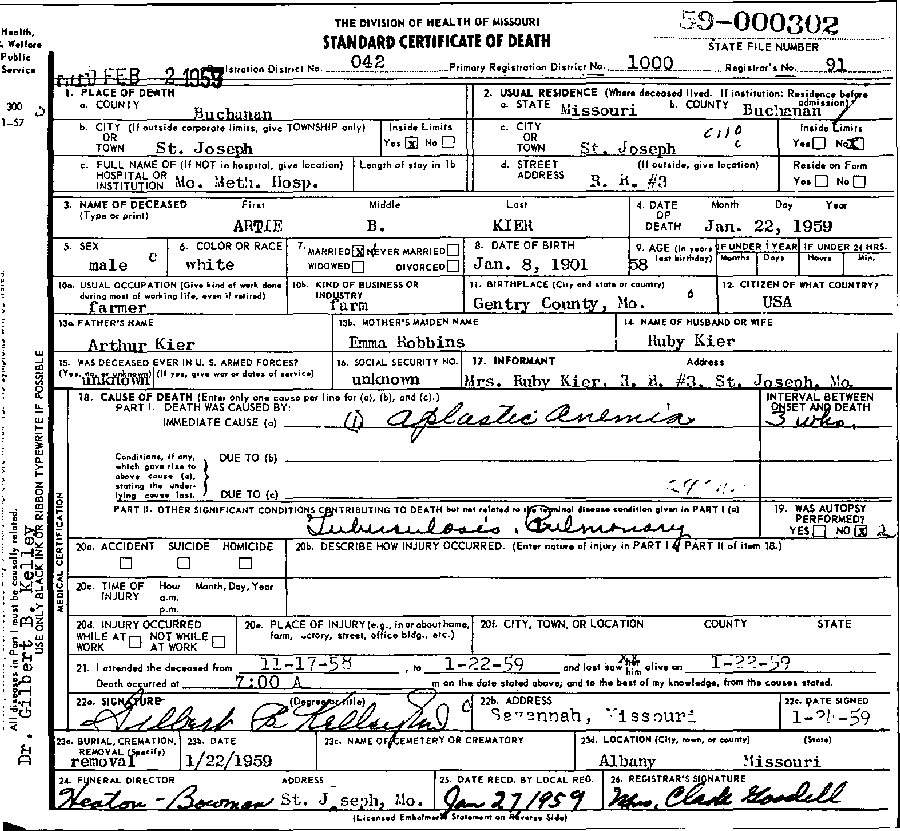 59-000302
THE DIVISION OF HEALTH OF MISSOURI
STANDARD CERTIFICATE OF DEATH
STATE FILE NUMBER
Health,
& Welfare
Public
Service
300
1-57
FEB - 2 1959
istration District No. 042 Primary Registration District No. 1000 Registrar's No. 91
1. PLACE OF DEATH
a. COUNTY Buchanan
2. USUAL RESIDENCE (Where deceased lived. If institution: Residence before admission)
a. STATE Missouri b. COUNTY Buchanan
b. CITY (If outside corporate limits, give TOWNSHIP only) OR TOWN St. Joseph
Inside Limits Yes [X] No [ ]
c. CITY OR TOWN St. Joseph
Inside Limits Yes [ ] No [X]
c. FULL NAME OF (If NOT in hospital, give location) HOSPITAL OR INSTITUTION Mo. Meth. Hosp.
Length of stay in 1b
d. STREET ADDRESS (If outside, give location) R. R. #3
Reside on Farm Yes [ ] No [ ]
3. NAME OF DECEASED (Type or print) First Middle Last
ARTIE B. KIER
4. DATE OF DEATH Month Day Year
Jan. 22, 1959
5. SEX male
6. COLOR OR RACE white
7. MARRIED [X] NEVER MARRIED [ ] WIDOWED [ ] DIVORCED [ ]
8. DATE OF BIRTH Jan. 8, 1901
9. AGE (In years last birthday) 58
IF UNDER 1 YEAR Months Days
IF UNDER 24 HRS. Hours Min.
10a. USUAL OCCUPATION (Give kind of work done during most of working life, even if retired) farmer
10b. KIND OF BUSINESS OR INDUSTRY farm
11. BIRTHPLACE (City and state or country) Gentry County, Mo.
12. CITIZEN OF WHAT COUNTRY? USA
13a. FATHER'S NAME Arthur Kier
13b. MOTHER'S MAIDEN NAME Emma Robbins
14. NAME OF HUSBAND OR WIFE Ruby Kier
15. WAS DECEASED EVER IN U. S. ARMED FORCES? (Yes, no, or unknown) (If yes, give war or dates of service) unknown
16. SOCIAL SECURITY NO. unknown
17. INFORMANT Address
Mrs. Ruby Kier, R. R. #3, St. Joseph, Mo.
18. CAUSE OF DEATH (Enter only one cause per line for (a), (b), and (c).)
PART I. DEATH WAS CAUSED BY:
IMMEDIATE CAUSE (a) (1) Aplastic Anemia
INTERVAL BETWEEN ONSET AND DEATH
3 wks.
Conditions, if any, which gave rise to above cause (a), stating the underlying cause last.
DUE TO (b)
DUE TO (c)
PART II. OTHER SIGNIFICANT CONDITIONS CONTRIBUTING TO DEATH but not related to the terminal disease condition given in PART I (a)
Tuberculosis, Pulmonary
19. WAS AUTOPSY PERFORMED? YES [ ] NO [X] 2
20a. ACCIDENT SUICIDE HOMICIDE
20b. DESCRIBE HOW INJURY OCCURRED. (Enter nature of injury in PART I or PART II of item 18.)
20c. TIME OF INJURY Hour Month, Day, Year
a.m.
p.m.
20d. INJURY OCCURRED WHILE AT WORK [ ] NOT WHILE AT WORK [ ]
20e. PLACE OF INJURY (e.g., in or about home, farm, factory, street, office bldg., etc.)
20f. CITY, TOWN, OR LOCATION COUNTY STATE
21. I attended the deceased from 11-17-58, to 1-22-59 and last saw him alive on 1-22-59
Death occurred at 7:00 A m on the date stated above; and to the best of my knowledge, from the causes stated.
22a. SIGNATURE (Degree or title)
Gilbert B Kelley, md
22b. ADDRESS Savannah, Missouri
22c. DATE SIGNED
23a. BURIAL, CREMATION, REMOVAL (Specify) removal
23b. DATE 1/22/1959
23c. NAME OF CEMETERY OR CREMATORY
23d. LOCATION (City, town, or county) (State)
Albany Missouri
24. FUNERAL DIRECTOR ADDRESS
Heaton-Bowman St. Joseph, Mo.
25. DATE RECD. BY LOCAL REG. Jan 27 1959
26. REGISTRAR'S SIGNATURE
Mrs. Clade Goodell
(Licensed Embalmer's Statement on Reverse Side)
MEDICAL CERTIFICATION
USE ONLY BLACK INK OR RIBBON TYPEWRITE IF POSSIBLE
Dr. Gilbert B. Kelley
All diseases in Part I must be causally related.